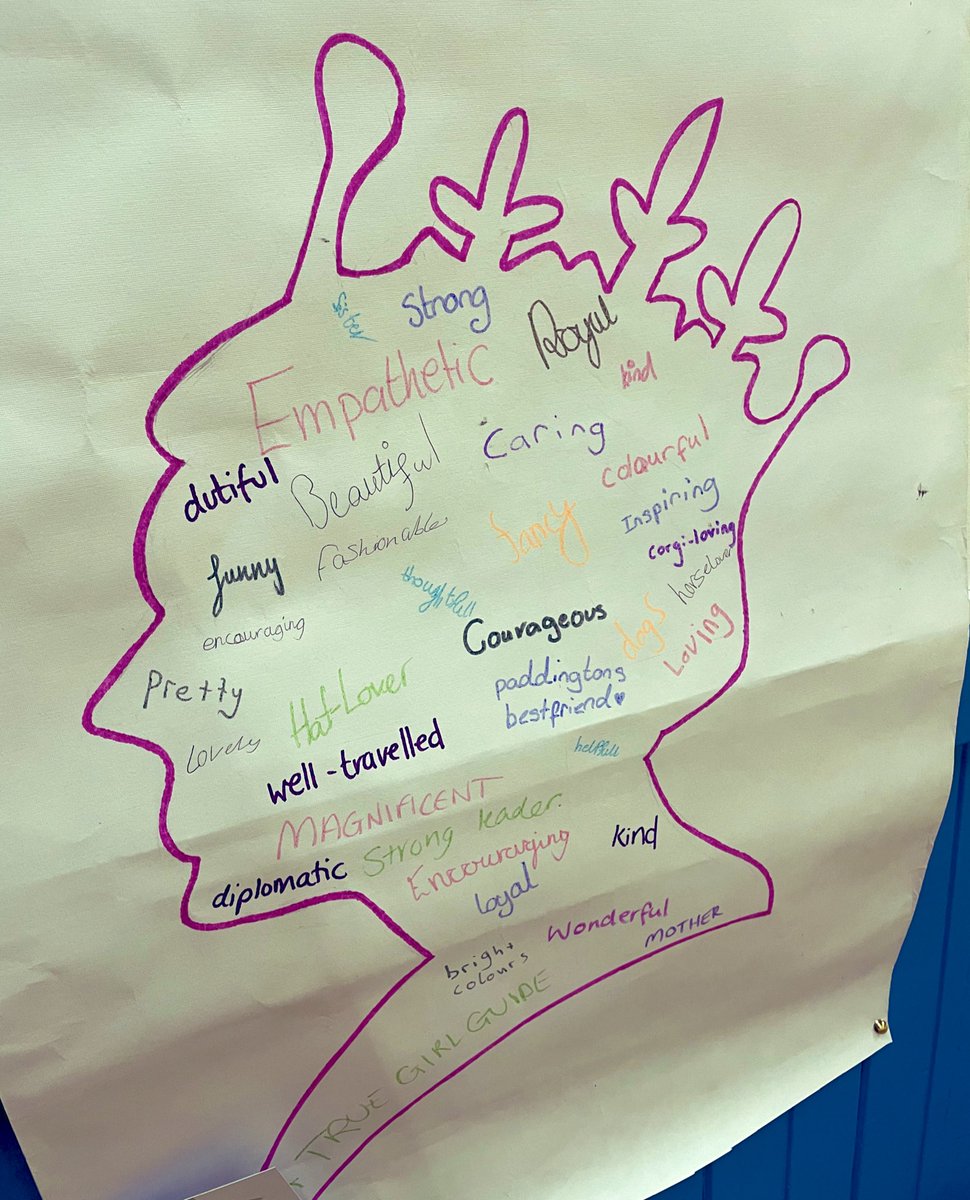 sister
Strong
Royal
Empathetic
kind
Caring
dutiful
Beautiful
colourful
Inspiring
fancy
Fashionable
corgi-loving
funny
thoughtfull
horselover
encouraging
Courageous
dogs
Loving
Pretty
Hat-Lover
paddingtons
bestfriend♥
Lovely
well-travelled
helpfull
MAGNIFICENT
Strong leader
diplomatic
Encouraging
kind
loyal
Wonderful
MOTHER
bright
colours
TRUE GIRL GUIDE